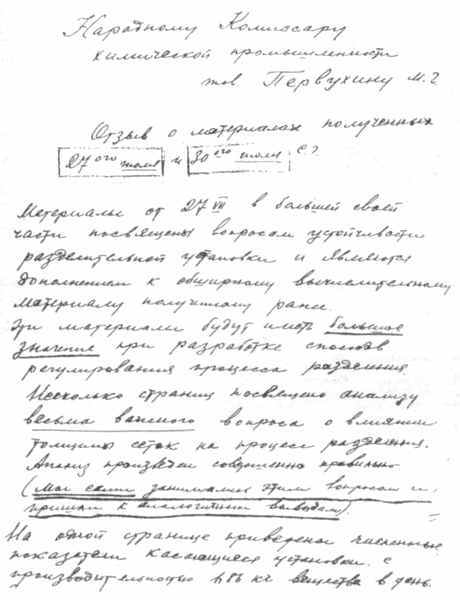 Народному Комиссару
химической промышленности
тов Первухину М.Г
Отзыв о материалах полученных
27ого июля и 30ого июля с?
Материалы от 27 VII в большей своей
части посвящены вопросам устойчивости
разделительной установки и являются
дополнением к обширному вычислительному
материалу полученному ранее.
Эти материалы будут иметь большое
значение при разработке способов
регулирования процесса разделения
Несколько страниц посвящено анализу
весьма важного вопроса о влиянии
толщины сеток на процесс разделения.
Анализ произведен совершенно правильно
(Мы сами занимались этим вопросом и
пришли к аналогичным выводам).
На одной странице приведены численные
показатели касающиеся установки с
производительностью кг вещества в день.